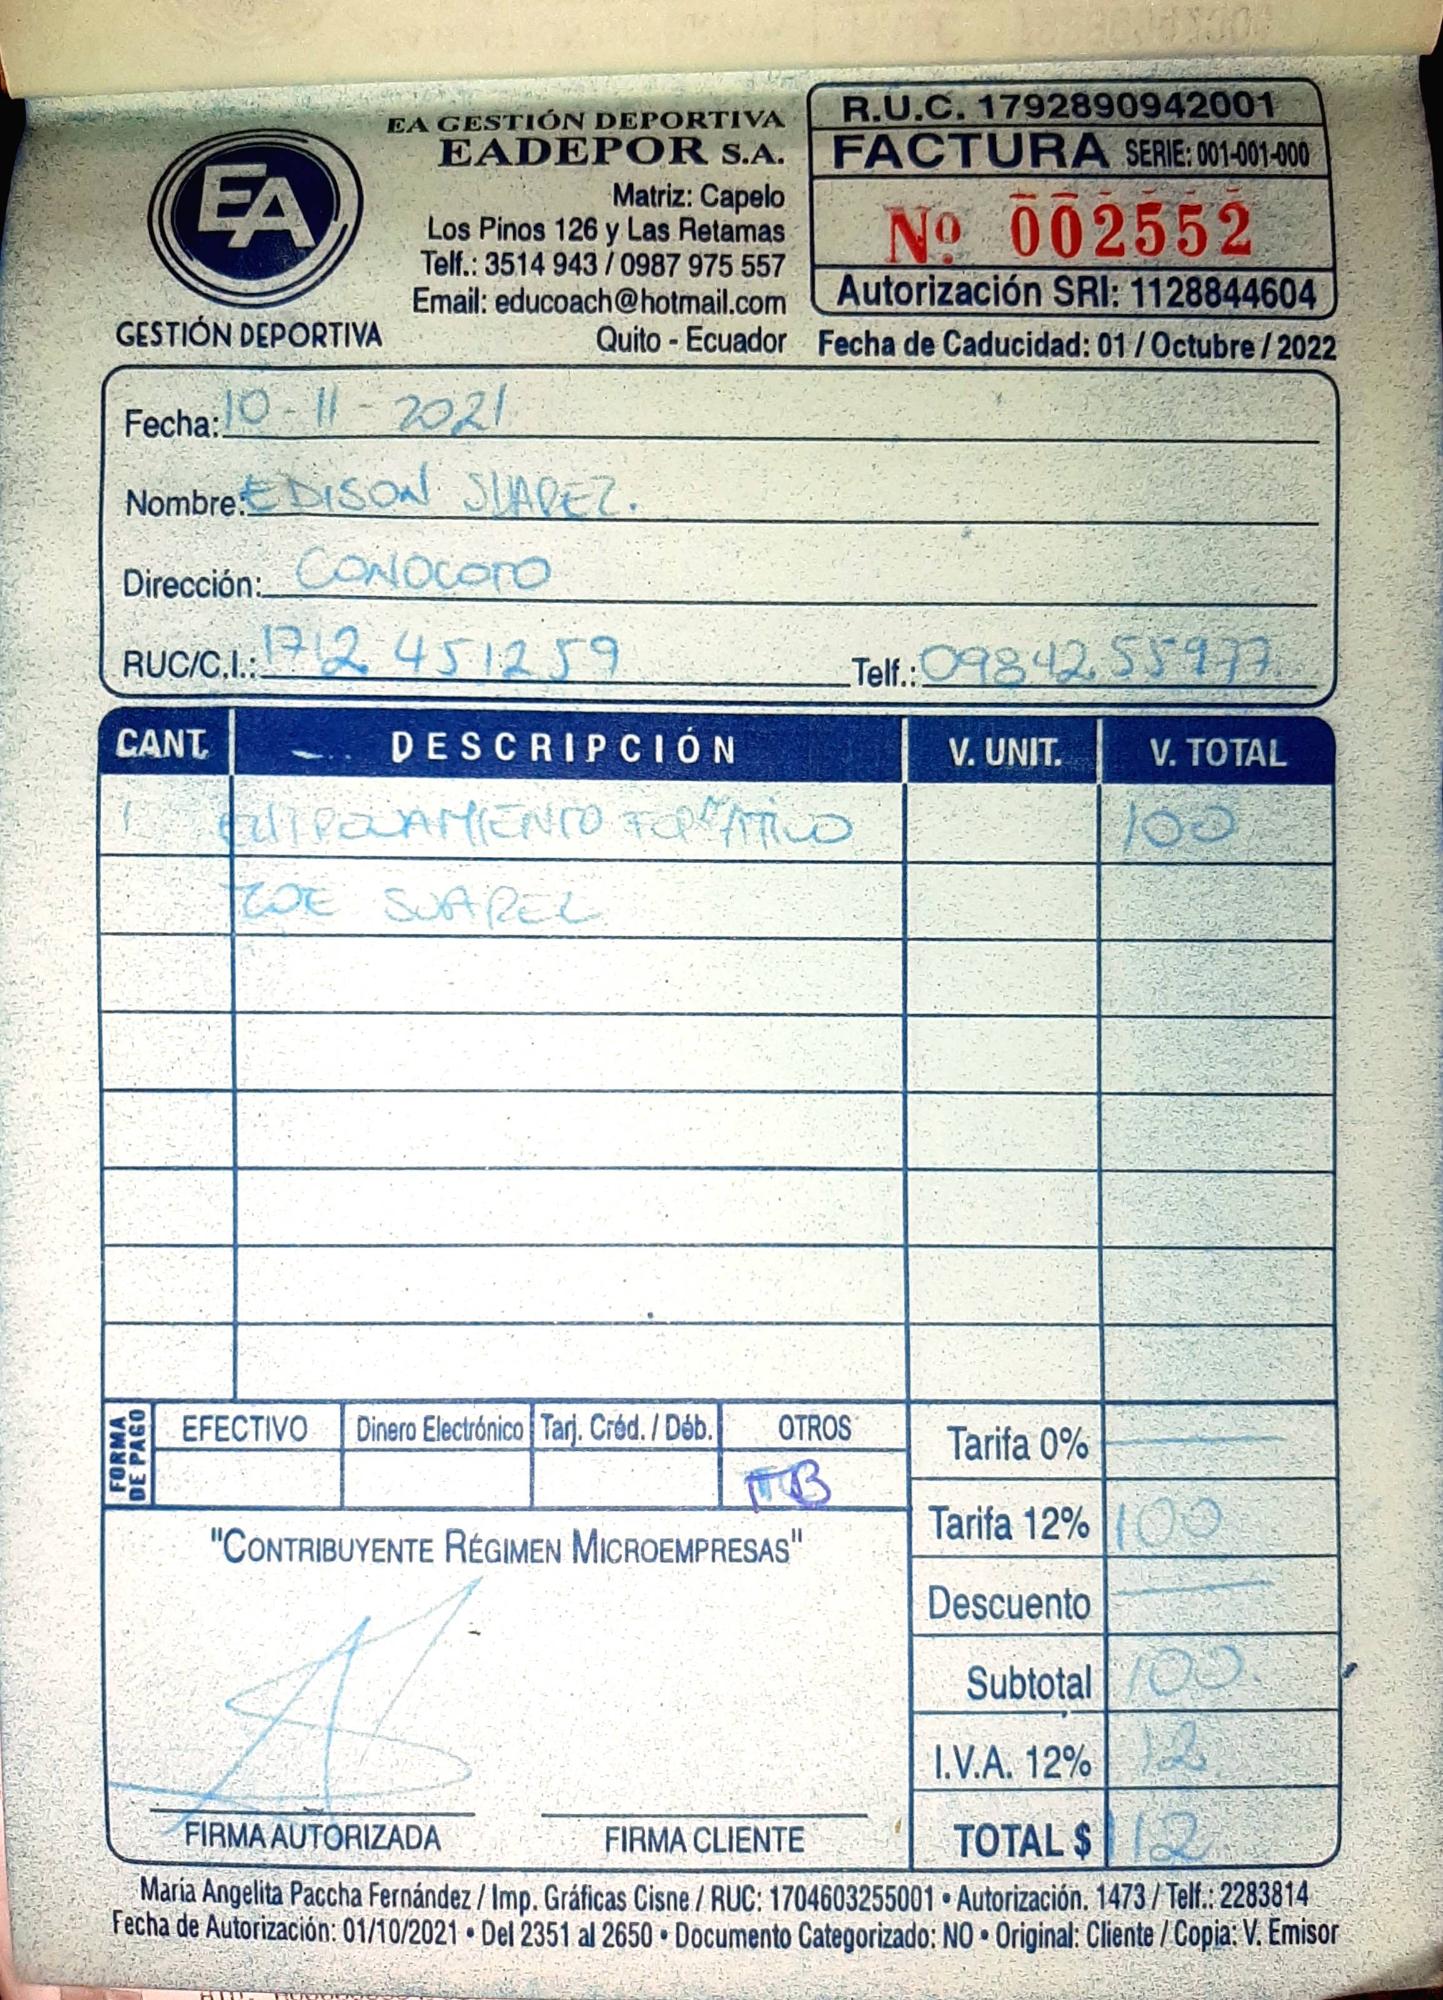 EA GESTIÓN DEPORTIVA
EADEPOR S.A.
Matriz: Capelo
Los Pinos 126 y Las Retamas
Telf.: 3514 943 / 0987 975 557
Email: educoach@hotmail.com
Quito - Ecuador
EA
GESTIÓN DEPORTIVA
R.U.C. 1792890942001
FACTURA SERIE: 001-001-000
Nº 002552
Autorización SRI: 1128844604
Fecha de Caducidad: 01 / Octubre / 2022
Fecha: 10-11-2021
Nombre: EDISON SUAREZ.
Dirección: CONOCOTO
RUC/C.I.: 1712451259 Telf.: 0984255977
CANT. DESCRIPCIÓN V. UNIT. V. TOTAL
1 FORMATIVO 100
ZOE SUAREZ
FORMA DE PAGO
EFECTIVO Dinero Electrónico Tarj. Créd. / Déb. OTROS
Tarifa 0% —
Tarifa 12% 100
Descuento —
Subtotal 100.
I.V.A. 12% 12
TOTAL $ 112
"CONTRIBUYENTE RÉGIMEN MICROEMPRESAS"
FIRMA AUTORIZADA FIRMA CLIENTE
María Angelita Paccha Fernández / Imp. Gráficas Cisne / RUC: 1704603255001 • Autorización. 1473 / Telf.: 2283814
Fecha de Autorización: 01/10/2021 • Del 2351 al 2650 • Documento Categorizado: NO • Original: Cliente / Copia: V. Emisor